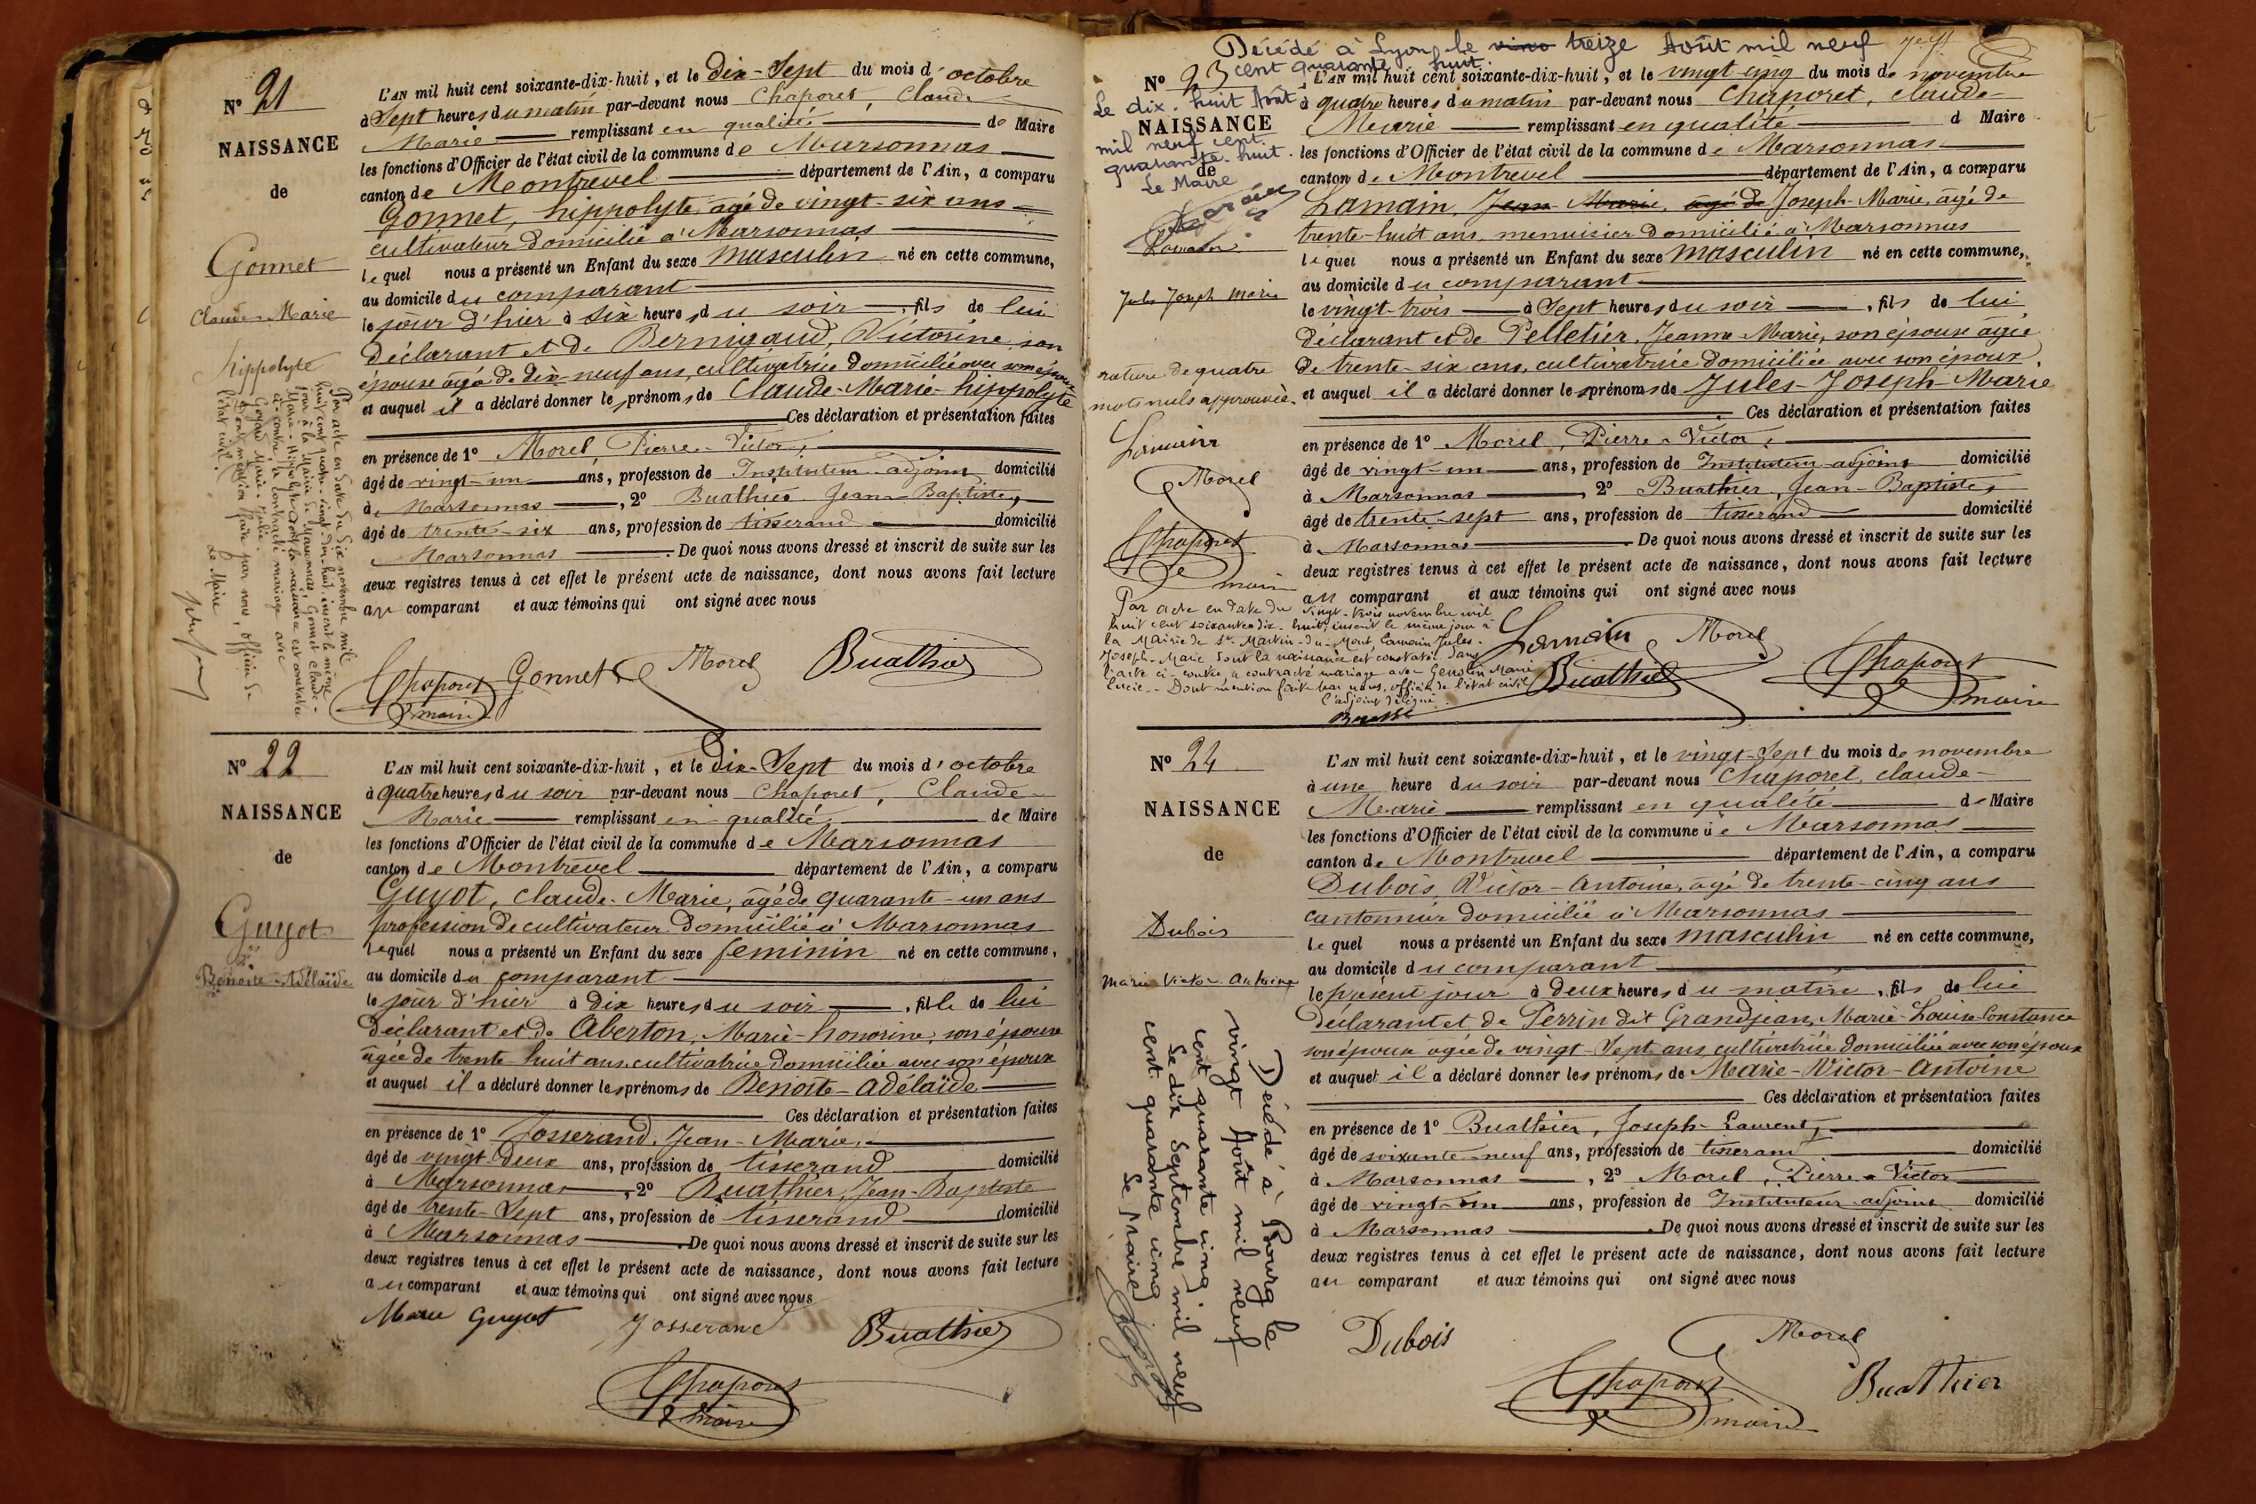 N° 21
NAISSANCE
de
Gonnet
Claude-Marie
hippolyte
L'AN mil huit cent soixante-dix-huit, et le dix-Sept du mois d'octobre
à Sept heures du matin par-devant nous Chaporet, Claude-
Marie remplissant en qualité de Maire
les fonctions d'Officier de l'état civil de la commune de Marsonnas
canton de Montrevel département de l'Ain, a comparu
Gonnet, hippolyte, âgé de vingt-six ans
cultivateur domicilié à Marsonnas
lequel nous a présenté un Enfant du sexe masculin né en cette commune,
au domicile du comparant
le jour d'hier à six heures du soir, fils de lui
déclarant et de Bernigaud, Victorine, son
épouse âgée de dix-neuf ans, cultivatrice domiciliée avec son époux
et auquel il a déclaré donner les prénoms de Claude-Marie-hippolyte
Ces déclaration et présentation faites
en présence de 1° Morel, Pierre-Victor,
âgé de vingt-un ans, profession de Instituteur-adjoint domicilié
à Marsonnas, 2° Buathier Jean-Baptiste,
âgé de trente-six ans, profession de tisserand domicilié
à Marsonnas. De quoi nous avons dressé et inscrit de suite sur les
deux registres tenus à cet effet le présent acte de naissance, dont nous avons fait lecture
au comparant et aux témoins qui ont signé avec nous
Par acte en date du dix novembre mil
huit cent quatre-vingt-dix-huit, inscrit le même
jour à la Mairie de Marsonnas, Gonnet Claude-
Marie-Hippolyte dont la naissance est constatée
ci-contre, a contracté mariage avec
Goyard Marie-Julie.
Dont mention faite par nous, officier de
l'état civil.
Le Maire
Chaporet
maire
Gonnet
Morel
Buathier
N° 22
NAISSANCE
de
Guyot
Benoite-Adélaïde
L'AN mil huit cent soixante-dix-huit, et le dix-Sept du mois d'octobre
à quatre heures du soir par-devant nous Chaporet, Claude-
Marie remplissant en qualité de Maire
les fonctions d'Officier de l'état civil de la commune de Marsonnas
canton de Montrevel département de l'Ain, a comparu
Guyot, Claude-Marie, âgé de quarante-un ans
profession de cultivateur domicilié à Marsonnas
lequel nous a présenté un Enfant du sexe feminin né en cette commune,
au domicile du comparant
le jour d'hier à dix heures du soir, fille de lui
déclarant et de Aberton, Marie-honorine, son épouse
âgée de trente-huit ans, cultivatrice domiciliée avec son époux
et auquel il a déclaré donner les prénoms de Benoite-adélaïde
Ces déclaration et présentation faites
en présence de 1° Josserand, Jean-Marie,
âgé de vingt-deux ans, profession de tisserand domicilié
à Marsonnas, 2° Buathier, Jean-Baptiste
âgé de trente-Sept ans, profession de tisserand domicilié
à Marsonnas. De quoi nous avons dressé et inscrit de suite sur les
deux registres tenus à cet effet le présent acte de naissance, dont nous avons fait lecture
au comparant et aux témoins qui ont signé avec nous
Marie Guyot
Josserand
Buathier
Chaporet
maire
Décédé à Lyon, le vino treize Août mil neuf
cent quarante huit.
Le dix-huit Août
mil neuf cent
quarante-huit.
Le Maire
N° 23
NAISSANCE
de
Lamain
Jules Joseph Marie
rature de quatre
mots nuls approuvée.
Lamain
Morel
Chaporet
maire
L'AN mil huit cent soixante-dix-huit, et le vingt cinq du mois de novembre
à quatre heures du matin par-devant nous Chaporet, claude-
Marie remplissant en qualité d Maire
les fonctions d'Officier de l'état civil de la commune de Marsonnas
canton de Montrevel département de l'Ain, a comparu
Lamain, Jean Marie, âgé de Joseph-Marie, âgé de
trente-huit ans, menuisier domicilié à Marsonnas
lequel nous a présenté un Enfant du sexe masculin né en cette commune,
au domicile du comparant
le vingt-trois à Sept heures du soir, fils de lui
déclarant et de Pelletier, Jeanne-Marie, son épouse âgée
de trente-six ans, cultivatrice domiciliée avec son époux
et auquel il a déclaré donner les prénoms de Jules-Joseph-Marie
Ces déclaration et présentation faites
en présence de 1° Morel, Pierre-Victor,
âgé de vingt-un ans, profession de Instituteur-adjoint domicilié
à Marsonnas, 2° Buathier, Jean-Baptiste,
âgé de trente-sept ans, profession de tisserand domicilié
à Marsonnas. De quoi nous avons dressé et inscrit de suite sur les
deux registres tenus à cet effet le présent acte de naissance, dont nous avons fait lecture
au comparant et aux témoins qui ont signé avec nous
Par acte en date du vingt-trois novembre mil
huit cent soixante dix-huit, inscrit le même jour à
la Mairie de St Martin-du-Mont, Lamain Jules-
Joseph-Marie dont la naissance est constatée dans
l'acte ci-contre a contracté mariage avec Genolin Marie
Lucie. Dont mention faite par nous, officier de l'état civil
l'adjoint délégué.
Lamain
Morel
Buathier
Chaporet
maire
N° 24
NAISSANCE
de
Dubois
Marie Victor Antoine
L'AN mil huit cent soixante-dix-huit, et le vingt-Sept du mois de novembre
à une heure du soir par-devant nous Chaporet, claude-
Marie remplissant en qualité de Maire
les fonctions d'Officier de l'état civil de la commune de Marsonnas
canton de Montrevel département de l'Ain, a comparu
Dubois, Victor-Antoine, âgé de trente-cinq ans
cantonnier domicilié à Marsonnas
lequel nous a présenté un Enfant du sexe masculin né en cette commune,
au domicile du comparant
le présent jour à deux heures du matin, fils de lui
déclarant et de Perrin dit Grandjean, Marie-Louise-Constance
son épouse âgée de vingt-Sept ans, cultivatrice domiciliée avec son époux
et auquel il a déclaré donner les prénoms de Marie-Victor-Antoine
Ces déclaration et présentation faites
en présence de 1° Buathier, Joseph-Laurent,
âgé de soixante-neuf ans, profession de tisserand domicilié
à Marsonnas, 2° Morel, Pierre-Victor
âgé de vingt-un ans, profession de Instituteur-adjoint domicilié
à Marsonnas. De quoi nous avons dressé et inscrit de suite sur les
deux registres tenus à cet effet le présent acte de naissance, dont nous avons fait lecture
au comparant et aux témoins qui ont signé avec nous
Décédé à Bourg le
vingt Août mil neuf
cent quarante cinq.
Le dix Septembre mil neuf
cent quarante cinq
Le Maire
Dubois
Morel
Chaporet
maire
Buathier